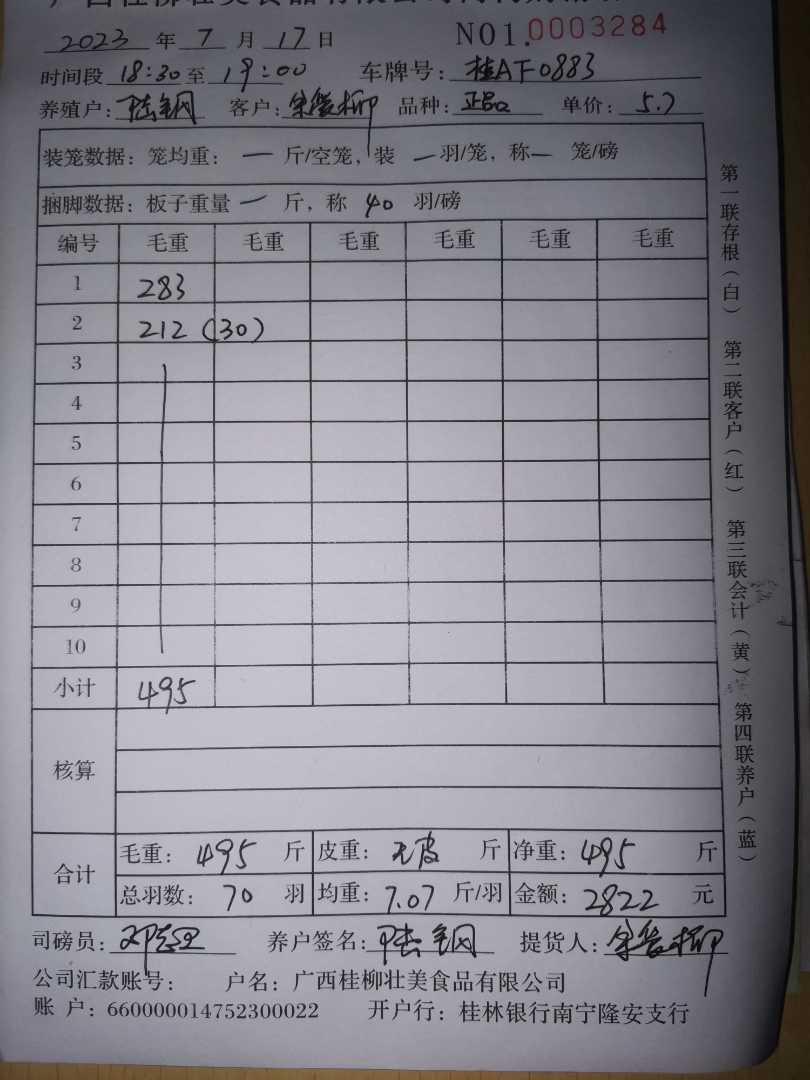 2023 年 7 月 17 日 NO1.0003284
时间段 18:30 至 19:00 车牌号: 桂AF0883
养殖户: 陆钢 客户: 品种: 正品 单价: 5.7
装笼数据: 笼均重: 一 斤/空笼, 装 一 羽/笼, 称 一 笼/磅
捆脚数据: 板子重量 一 斤, 称 40 羽/磅
编号 毛重 毛重 毛重 毛重 毛重 毛重
1 283
2 212 (30)
3
4
5
6
7
8
9
10
小计 495
核算
合计 毛重: 495 斤 皮重: 无皮 斤 净重: 495 斤
总羽数: 70 羽 均重: 7.07 斤/羽 金额: 2822 元
司磅员: 养户签名: 陆钢 提货人:
公司汇款账号: 户名: 广西桂柳壮美食品有限公司
账 户: 660000014752300022 开户行: 桂林银行南宁隆安支行
第一联存根(白) 第二联客户(红) 第三联会计(黄) 第四联养户(蓝)